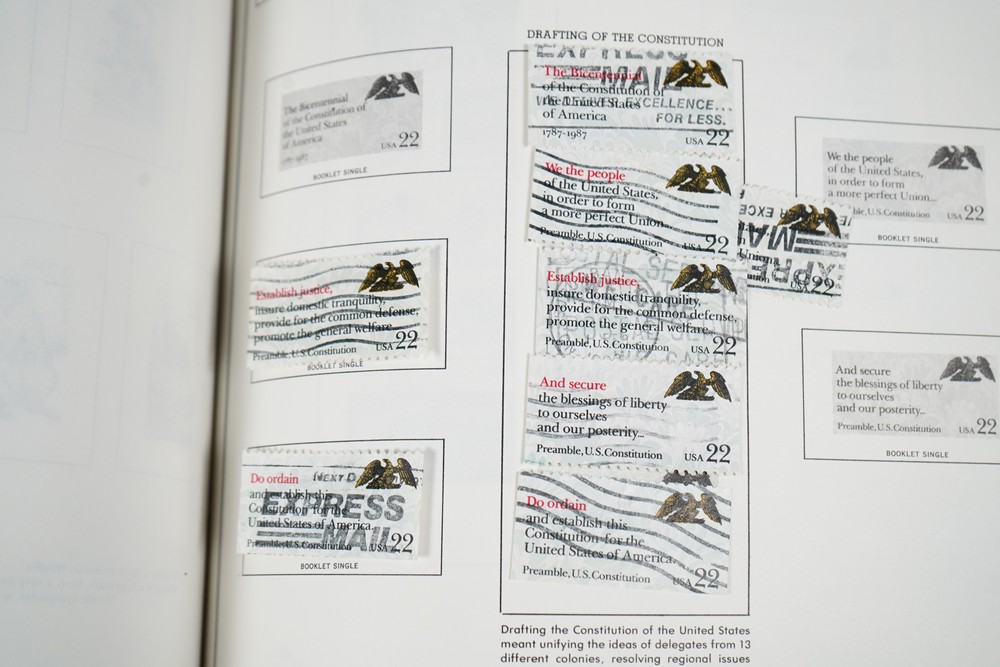 DRAFTING OF THE CONSTITUTION
The Bicentennial
of the Constitution of
the United States
of America
1787-1987
USA 22
BOOKLET SINGLE
Establish justice,
insure domestic tranquility,
provide for the common defense,
promote the general welfare...
Preamble, U.S. Constitution
USA 22
BOOKLET SINGLE
Do ordain
NEXT D
and establish this
Constitution for the
United States of America.
EXPRESS
MAIL
Preamble, U.S. Constitution
USA 22
BOOKLET SINGLE
EXPRESS
MAIL
The Bicentennial
of the Constitution of
the United States
of America
EXCELLENCE...
FOR LESS.
1787-1987
USA 22
We the people
of the United States,
in order to form
a more perfect Union...
Preamble, U.S. Constitution
USA 22
Establish justice,
insure domestic tranquility,
provide for the common defense,
promote the general welfare...
Preamble, U.S. Constitution
USA 22
And secure
the blessings of liberty
to ourselves
and our posterity...
Preamble, U.S. Constitution
USA 22
Do ordain
and establish this
Constitution for the
United States of America.
Preamble, U.S. Constitution
USA 22
Drafting the Constitution of the United States
meant unifying the ideas of delegates from 13
different colonies, resolving regional issues
EXPRESS
MAIL
Union...
22
We the people
of the United States,
in order to form
a more perfect Union...
ble, U.S. Constitution
USA 22
BOOKLET SINGLE
And secure
the blessings of liberty
to ourselves
and our posterity...
Preamble, U.S. Constitution
USA 22
BOOKLET SINGLE